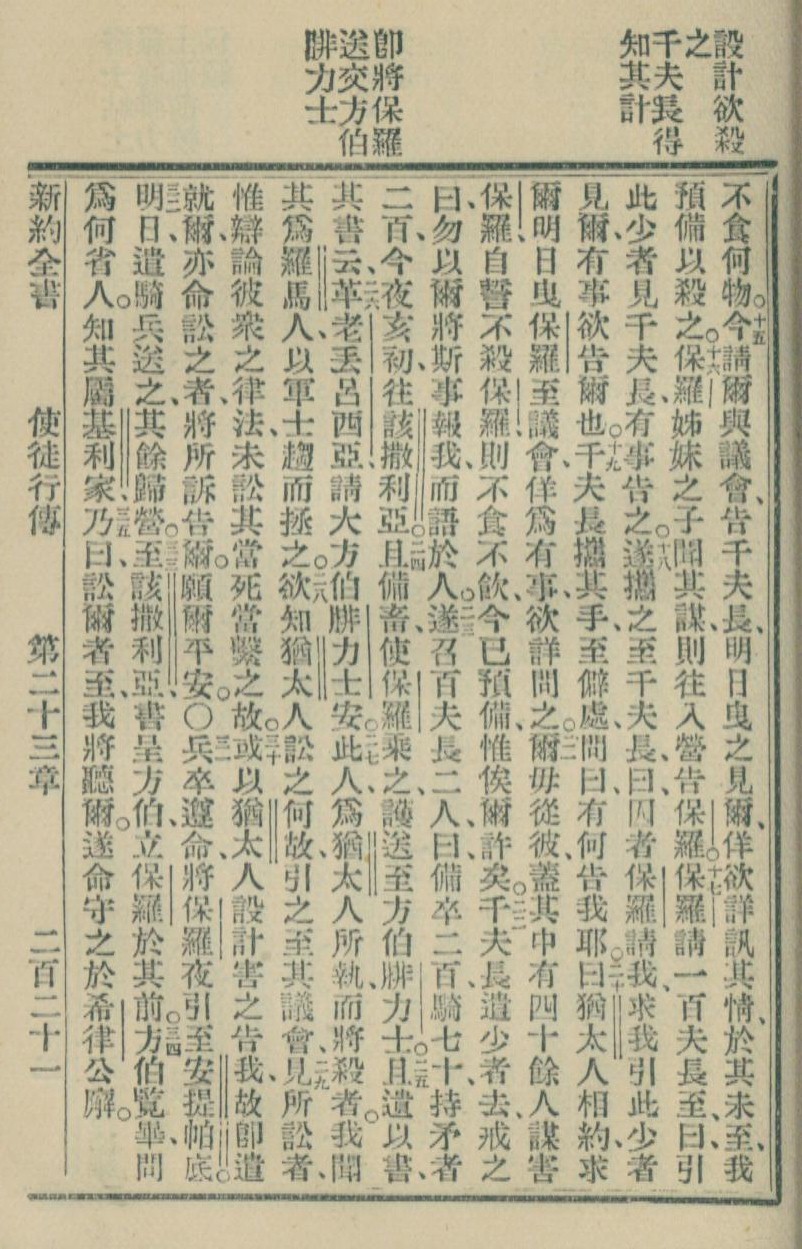 設計欲殺
之
千夫長得
知其計
卽將保羅
送交方伯
腓力士
不食何物。十五今請爾與議會、告千夫長、明日曳之見爾、佯欲詳訊其情、於其未至、我
預備以殺之。十六保羅姊妹之子聞其謀、則往入營告保羅。十七保羅請一百夫長至、曰、引
此少者見千夫長、有事告之。十八遂攜之至千夫長、曰、囚者保羅請我、求我引此少者
見爾、有事欲告爾也。十九千夫長攜其手、至僻處、問曰、有何告我耶。二十曰猶太人相約、求
爾明日曳保羅至議會、佯爲有事、欲詳問之。二一爾毋從彼、蓋其中有四十餘人謀害
保羅、自誓不殺保羅、則不食不飲、今已預備、惟俟爾許矣。二二千夫長遣少者去、戒之
曰、勿以爾將斯事報我、而語於人。二三遂召百夫長二人、曰、備卒二百、騎七十、持矛者
二百、今夜亥初、往該撒利亞。二四且備畜、使保羅乘之、護送至方伯腓力士。二五且遣以書、
其書云、二六革老丟呂西亞、請大方伯腓力士安。二七此人、爲猶太人所執、而將殺者。我聞
其爲羅馬人、以軍士趨而拯之。二八欲知猶太人訟之何故、引之至其議會、二九見所訟者、
惟辯論彼衆之律法、未訟其當死當繫之故。三十或以猶太人設計害之告我、故卽遣
就爾、亦命訟之者、將所訴告爾。願爾平安。〇三一兵卒遵命、將保羅夜引至安提帕底。
三二明日、遣騎兵送之、其餘歸營。三三至該撒利亞、書呈方伯、立保羅於其前。三四方伯覽畢、問
爲何省人。知其屬基利家、三五乃曰、訟爾者至、我將聽爾。遂命守之於希律公廨。
新約全書　使徒行傳　第二十三章　二百二十一